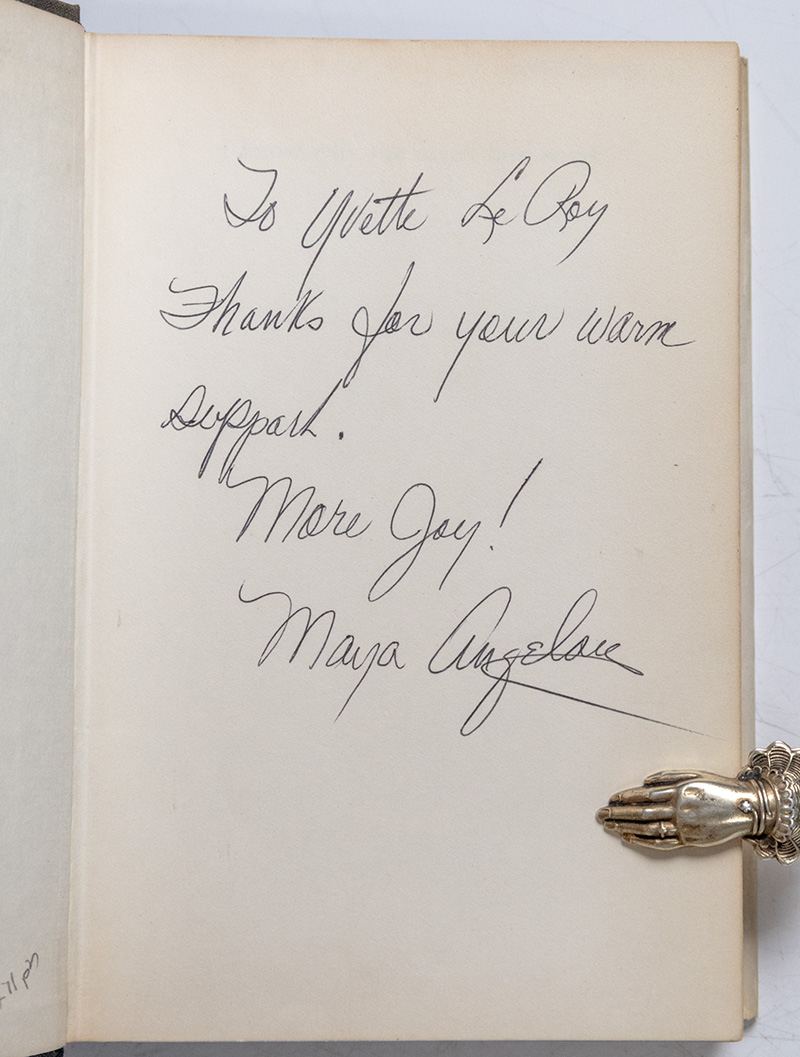 To Yvette Le Roy
Thanks for your warm
support.
More Joy!
Maya Angelou